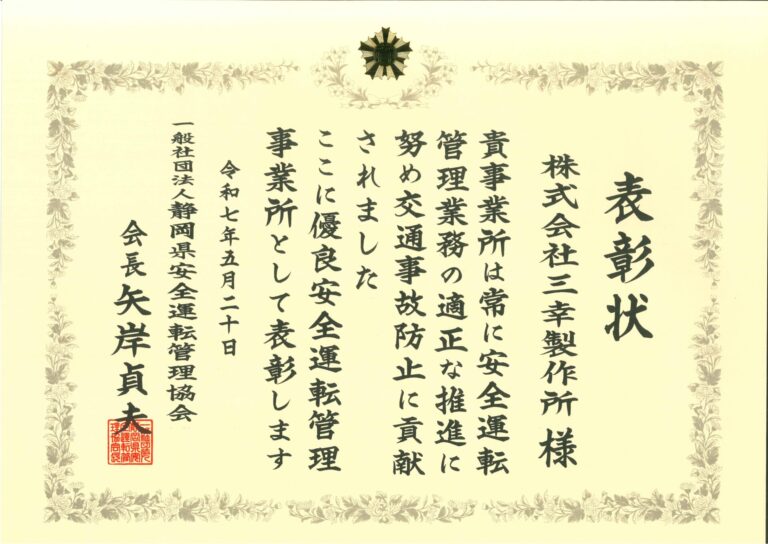 表彰状
株式会社三幸製作所 様
貴事業所は常に安全運転
管理業務の適正な推進に
努め交通事故防止に貢献
されました
ここに優良安全運転管理
事業所として表彰します
令和七年五月二十日
一般社団法人静岡県安全運転管理協会
会長 矢岸貞夫